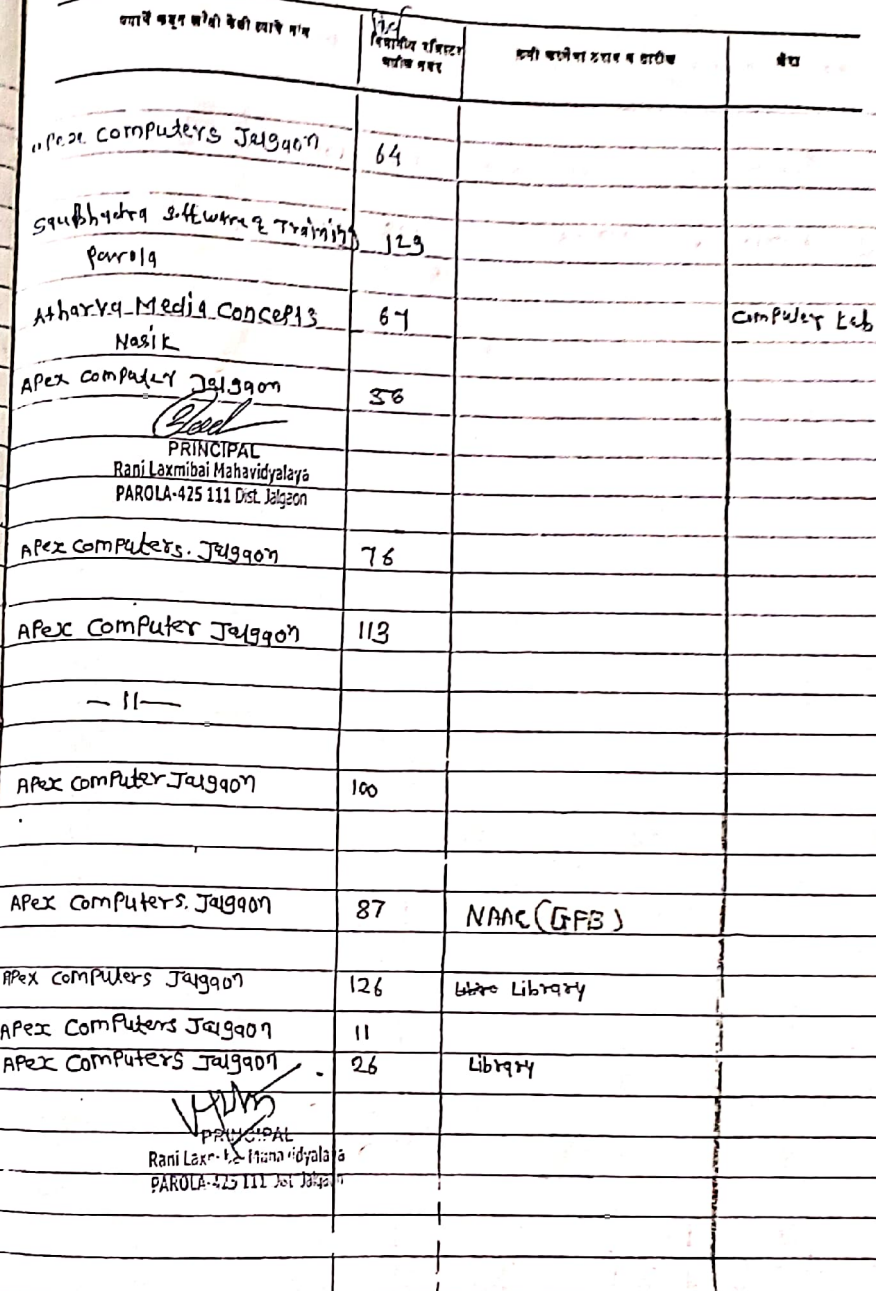 ज्याचे कडून खरेदी केली त्याचे नांव
विभागीय रजिस्टर
वरील नंबर
कमी करणेचा ठराव व तारीख
शेरा
Computers Jalgaon 64
Saubhadra Software & Training 129
Parola
Atharva Media Concepts 67 Computer Lab
Nasik
Apex Computer Jalgaon 36
PRINCIPAL
Rani Laxmibai Mahavidyalaya
PAROLA-425 111 Dist. Jalgaon
Apex Computers. Jalgaon 76
Apex Computer Jalgaon 113
— 11 —
Apex Computer Jalgaon 100
Apex Computers. Jalgaon 87 NAAC (GFB)
Apex Computers Jalgaon 126 Library
Apex Computers Jalgaon 11
Apex Computers Jalgaon 26 Library
PRINCIPAL
Rani Laxmibai Mahavidyalaya
PAROLA-425 111 Dist. Jalgaon